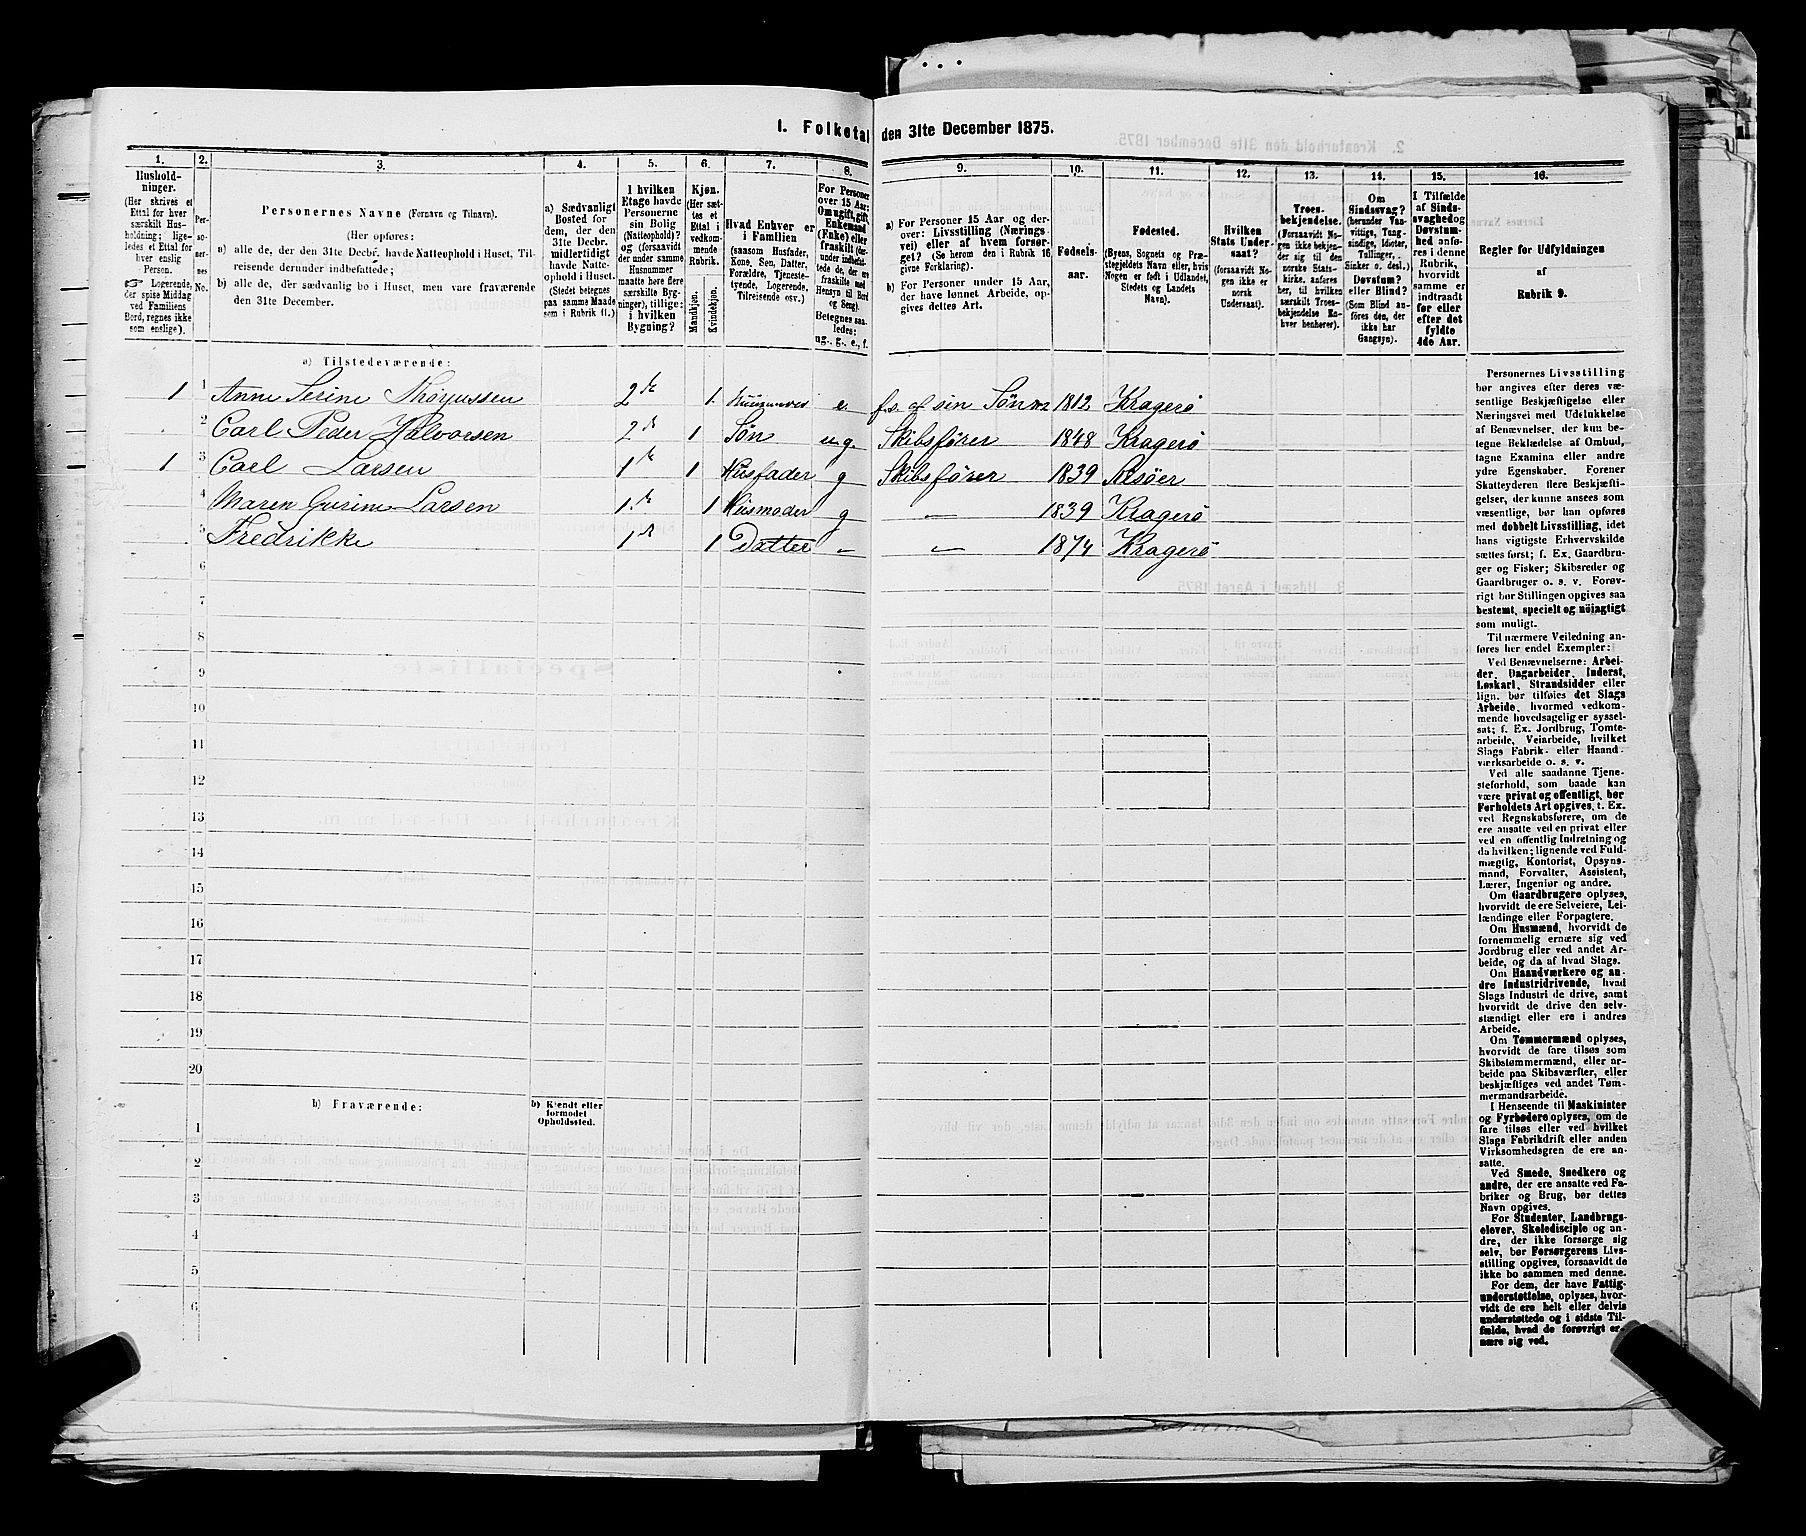 1. Folketal den 31te December 1875.
1.
2.
3.
4.
5.
6.
7.
8.
9.
10.
11.
12.
13.
14.
15.
16.
Husholdninger.
(Her skrives et
Ettal for hver
særskilt Husholdning;
ligeledes et Ettal for
hver enslig
Person.
Logerende,
der spise Middag
ved Familiens
Bord, regnes ikke
som enslige).
Personernes
No.
Personernes Navne (Fornavn og Tilnavn).
(Her opføres:
a) alle de, der den 31te Decbr. havde Natteophold i Huset, Tilreisende
derunder indbefattede;
b) alle de, der sædvanlig bo i Huset, men vare fraværende
den 31te December.
a) Sædvanligt
Bosted for
dem, der den
31te Decbr.
midlertidigt
havde Natteophold
i Huset.
(Stedet betegnes
paa samme Maade
som i Rubrik 11.)
I hvilken
Etage havde
Personerne
sin Bolig
(Natteophold)?
og (forsaavidt
der under samme
Husnummer
maatte høre flere
særskilte Bygninger),
tillige:
i hvilken
Bygning?
Kjøn.
(Her sættes
et
Ettal i
vedkommende
Rubrik.
Mandkjøn.
Kvindekjøn.
Hvad Enhver er
i Familien
(saasom Husfader,
Kone, Søn, Datter,
Forældre, Tjenestetyende,
Logerende,
Tilreisende osv.)
For Personer
over 15 Aar:
Om ugift, gift,
Enkemand
(Enke) eller
fraskilt
Betegnes saaledes:
ug., g., e., f.
a) For Personer 15 Aar og derover:
Livsstilling (Næringsvei)
eller af hvem forsørget?
(Se herom den i Rubrik 16
givne Forklaring).
b) For Personer under 15 Aar,
der have lønnet Arbeide, opgives
dettes Art.
Fødselsaar.
Fødested.
(Byens, Sognets og Præstegjeldets
Navn eller, hvis
Nogen er født i Udlandet,
Stedets og Landets
Navn).
Hvilken
Stats Undersaat?
(forsaavidt Nogen
ikke er
norsk
Undersaat).
Troesbekjendelse.
(Forsaavidt Nogen
ikke bekjender
sig til den
norske Statskirke,
anføres
her, til hvilken
særskilt Troesbekjendelse
Enhver
henhører).
Om
Sindssvag?
(herunder Vanvittige,
Tungsindige,
Idioter,
Tullinger,
Sinker o. desl.)
Døvstum?
eller Blind?
(Som Blind anføres
den, der
ikke har
Gangsyn).
I Tilfælde
af Sindssvaghed og
Døvstumhed
anføres
i denne
Rubrik,
hvorvidt
samme er
indtraadt
før eller
efter det
fyldte
4de Aar.
Regler for Udfyldningen
af
Rubrik 9.
a) Tilstedeværende:
1 1 Anne Serine 2de 1. e. f.s. af sin Søn 1812 Kragerø
2 Carl Peder Halvorsen 2de 1 Søn u.g. Skibsfører 1848 Kragerø
1 3 Carl Larsen 1te 1 Husfader g Skibsfører 1839 Risöer
4 Maren Gurine Larsen 1te 1 Husmoder g — 1839 Kragerø
5 Fredrikke 1te 1 Datter — — 1874 Kragerø
6
7
8
9
10
11
12
13
14
15
16
17
18
19
20
b) Fraværende:
b) Kjendt eller
formodet
Opholdssted.
1
2
3
4
5
6
Personernes Livsstilling
bør angives efter deres væsentlige
Beskjæftigelse eller
Næringsvei med Udelukkelse
af Benævnelser, der kun betegne
Beklædelse af Ombud,
tagne Examina eller andre
ydre Egenskaber. Forener
Skatteyderen flere Beskjæftigelser,
der kunne ansees som
væsentlige, bør han opføres
med dobbelt Livsstilling, idet
hans vigtigste Erhvervskilde
sættes først; f. Ex. Gaardbruger
og Fisker; Skibsreder og
Gaardbruger o. s. v. Forøvrigt
bør Stillingen opgives saa
bestemt, specielt og nöjagtigt
som muligt.
Til nærmere Veiledning anføres
her endel Exempler:
Ved Benævnelserne: Arbeider,
Dagarbeider, Inderst,
Løskarl, Strandsidder eller
lign. bør tilføies det Slags
Arbeide, hvormed vedkommende
hovedsagelig er sysselsat;
f. Ex. Jordbrug, Tomtearbeide,
Veiarbeide, hvilket
Slags Fabrik- eller Haandværksarbeide
o. s. v.
Ved alle saadanne Tjenesteforhold,
som baade kan
være privat og offentligt, bør
Forholdets Art opgives, t. Ex.
ved Regnskabsførere, om de
ere ansatte ved en privat eller
ved en offentlig Indretning og
da hvilken; lignende ved Fuldmægtig,
Kontorist, Opsynsmand,
Forvalter, Assistent,
Lærer, Ingeniør og andre.
Om Gaardbrugere oplyses,
hvorvidt de ere Selveiere, Leilændinge
eller Forpagtere.
Om Husmænd, hvorvidt de
fornemmelig ernære sig ved
Jordbrug eller ved andet Arbeide,
og da af hvad Slags.
Om Haandværkere og andre
Industridrivende, hvad
Slags Industri de drive, samt
hvorvidt de drive den selvstændigt
eller ere i andres
Arbeide.
Om Tømmermænd oplyses,
hvorvidt de fare tilsøs som
Skibstømmermænd, eller arbeide
paa Skibsværfter, eller
beskjæftiges ved andet Tømmermandsarbeide.
I Henseende til Maskinister
og Fyrbødere oplyses, om de
fare tilsøs eller ved hvilket
Slags Fabrikdrift eller anden
Virksomhedsgren de ere ansatte.
Ved Smede, Snedkere og
andre, der ere ansatte ved Fabriker
og Brug, bør dettes
Navn opgives.
For Studenter, Landbrugselever,
Skoledisciple og andre,
der ikke forsørge sig
selv, bør Forsørgerens Livsstilling
opgives, forsaavidt de
ikke bo sammen med denne.
For dem, der have Fattigunderstøttelse,
oplyses, hvorvidt
de ere helt eller delvis
understøttede og i sidste Tilfælde,
hvad de forøvrigt ernære
sig ved.